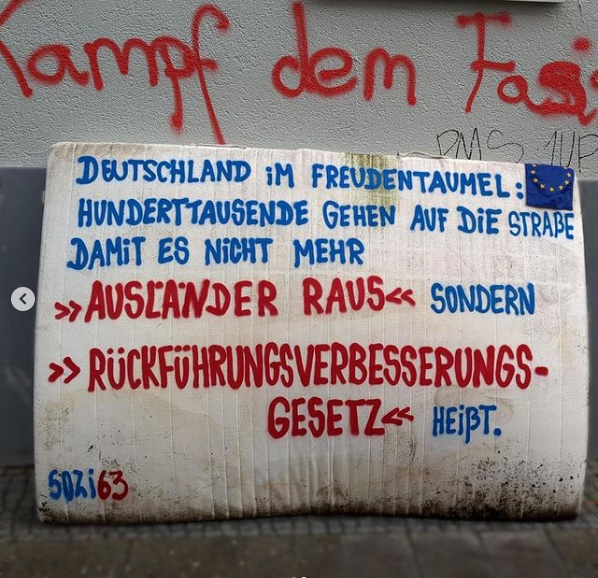 Kampf dem Fasis
PMS 1UP
DEUTSCHLAND iM FREUDENTAUMEL:
HUNDERTTAUSENDE GEHEN AUF DiE STRAßE
DAMiT ES NiCHT MEHR
»AUSLÄNDER RAUS« SONDERN
»RÜCKFÜHRUNGSVERBESSERUNGS-
GESETZ« HEIßT.
SOZi63